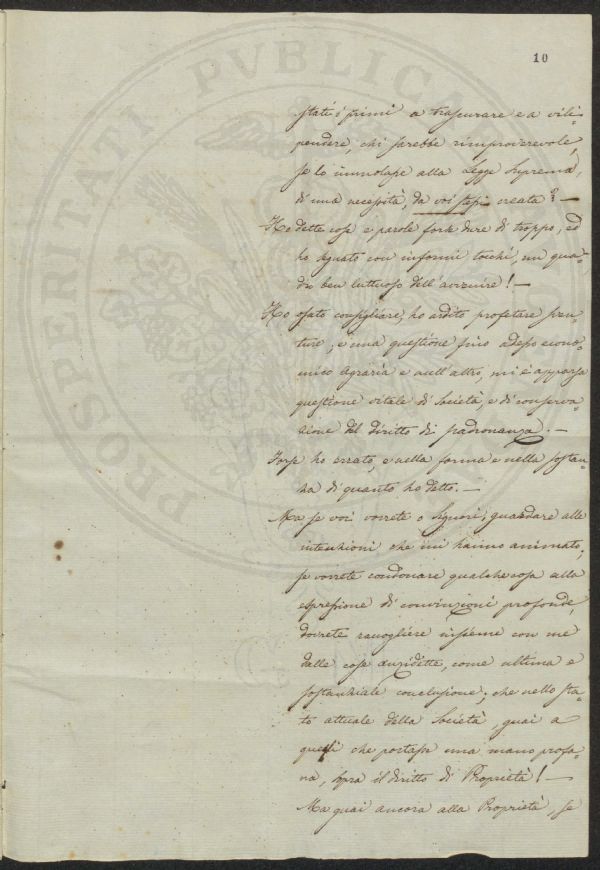 10
PROSPERITATI PVBLICAE
stati i primi a trascurare e a vili-
pendere, chi sarebbe rimproverevole,
se lo immolasse alla Legge Suprema,
di una necessità, da voi stessi creata? —
Ho dette cose e parole forse dure di troppo, ed
ho segnato con informi tocchi, un qua-
dro ben luttuoso dell'avvenire! —
Ho osato consigliare, ho ardito profetare sven-
ture; e una questione fino adesso econo-
mico Agraria e null'altro, mi è apparsa
questione vitale di Società, e di conserva-
zione del diritto di padronanza. —
Forse ho errato, e nella forma e nella sostan-
za di quanto ho detto. —
Ma se voi vorrete o Signori, guardare alle
intenzioni che mi hanno animato,
se vorrete condonare qualche cosa alla
espressione di convinzioni profonde,
dovrete raccogliere insieme con me
dalle cose anzidette, come ultima e
sostanziale conclusione; che nello sta-
to attuale della Società, guai a
quelli che portasse una mano profa-
na, sopra il diritto di Proprietà! —
Ma guai ancora alla Proprietà, se